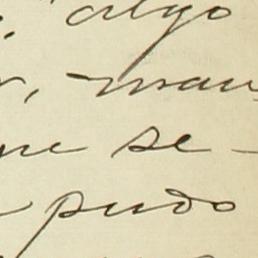 algo
r, man-
ue se-
pudo